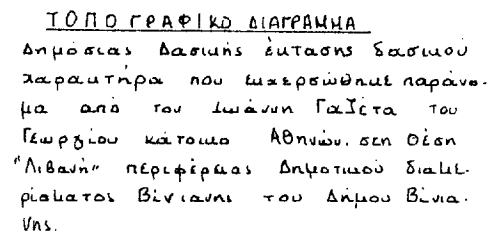 ΤΟΠΟΓΡΑΦΙΚΟ ΔΙΑΓΡΑΜΜΑ
Δημόσιας Δασικής έκτασης δασικού
χαρακτήρα που εκχερσώθηκε παράνο-
μα από τον Ιωάννη Γαζέτα του
Γεωργίου κάτοικο Αθηνών. στη θέση
"Λιβανή" περιφέρειας Δημοτικού διαμε-
ρίσματος Βίνιανης του Δήμου Βίνια-
νης.